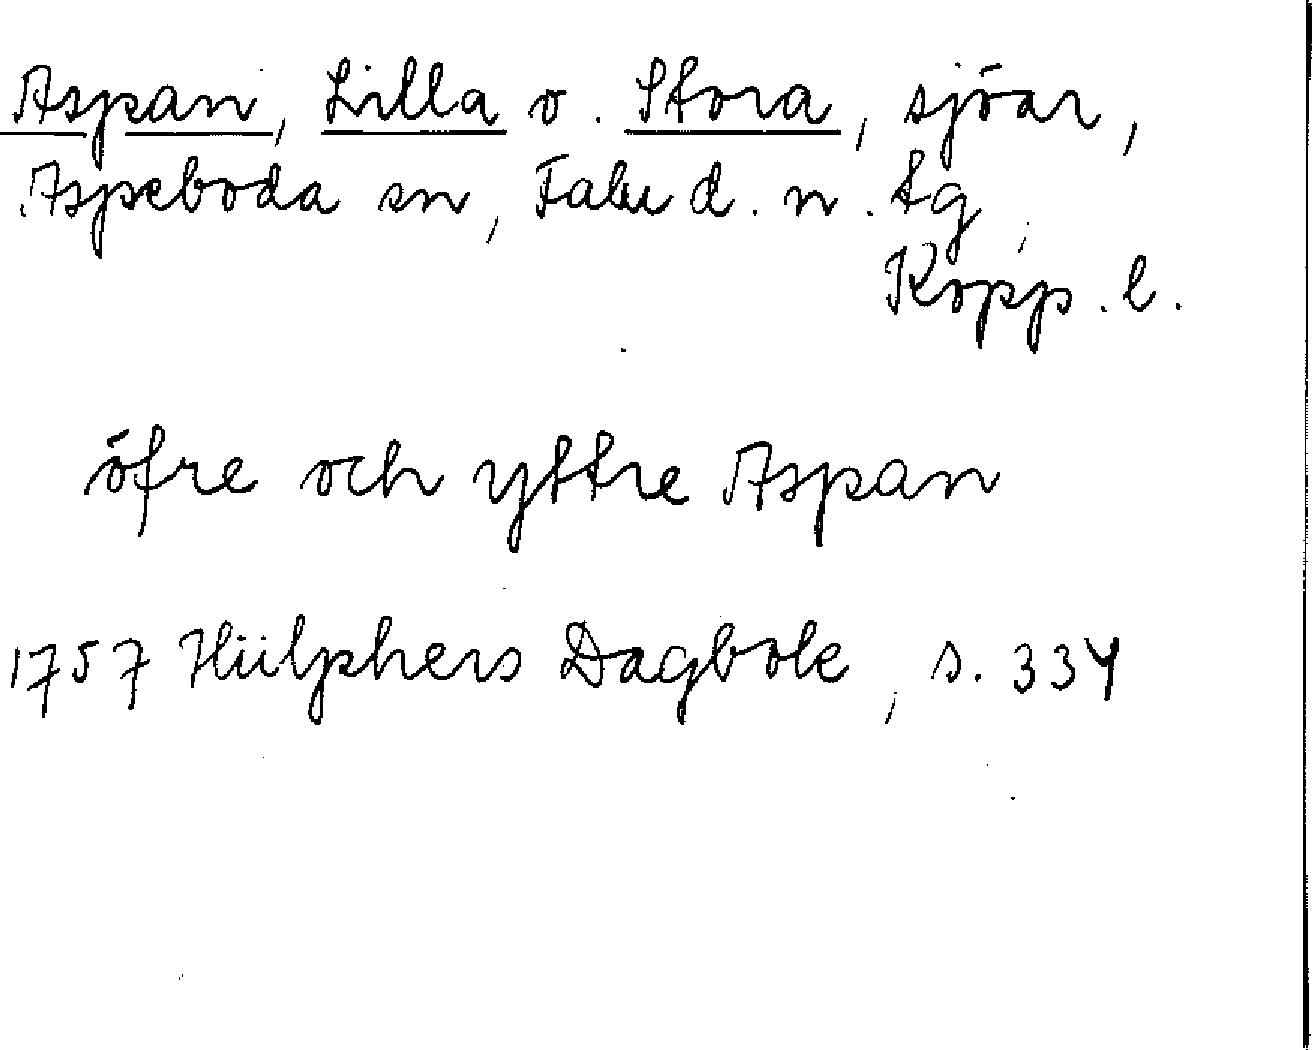 Aspan, Lilla o. Stora, sjöar,
Aspeboda sn, Falu d. n. tg,
Kopp. l.
öfre och yttre Aspan
1757 Hülphers Dagbok, s. 334